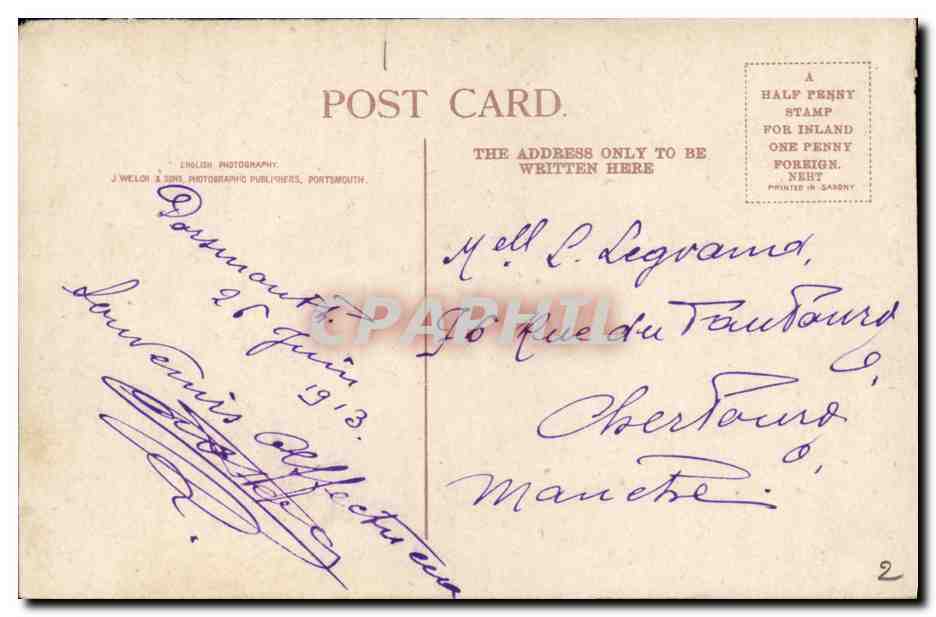 POST CARD.
A
HALF PENNY
STAMP
FOR INLAND
ONE PENNY
FOREIGN.
NEHT
PRINTED IN SAXONY
ENGLISH PHOTOGRAPHY.
J. WELCH & SONS, PHOTOGRAPHIC PUBLISHERS, PORTSMOUTH.
THE ADDRESS ONLY TO BE
WRITTEN HERE
26 Juin
1913.
Souvenirs Affectueux
Mell L. Legrand,
96 Rue du Faubourg
Cherbourg
Manche.
CPAPHIL
2